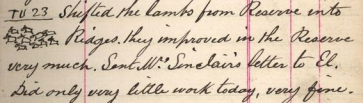 TU 23 Shifted the lambs from Reserve into
Ridges. they improved in the Reserve
very much. Sent Mrs Sinclair's letter to El.
Did only very little work today, very fine.